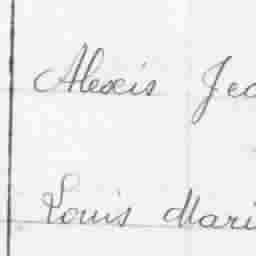 Alexis Jea
Louis Mari